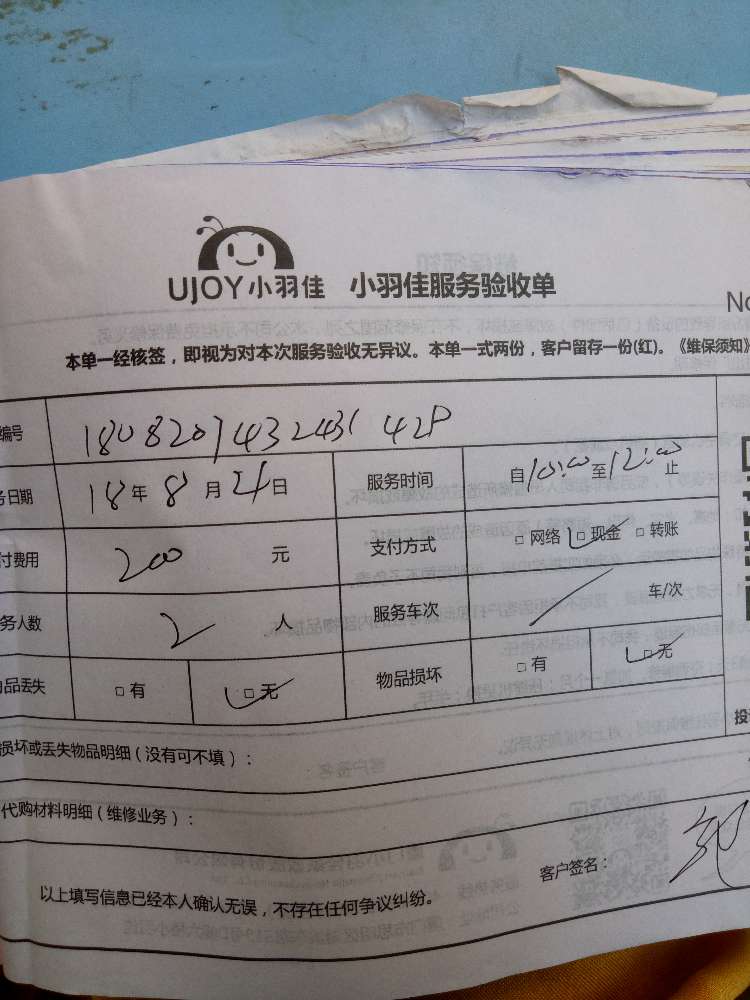 UJOY小羽佳 小羽佳服务验收单
No
本单一经核签，即视为对本次服务验收无异议。本单一式两份，客户留存一份(红)。《维保须知》
编号
日期 18年8月21日 服务时间 自10:00至12:00止
付费用 200 元 支付方式 □网络 □现金 □转账
务人数 2 人 服务车次 / 车/次
品丢失 □有 □无 物品损坏 □有 □无
损坏或丢失物品明细（没有可不填）：
投
代购材料明细（维修业务）：
客户签名：
以上填写信息已经本人确认无误，不存在任何争议纠纷。